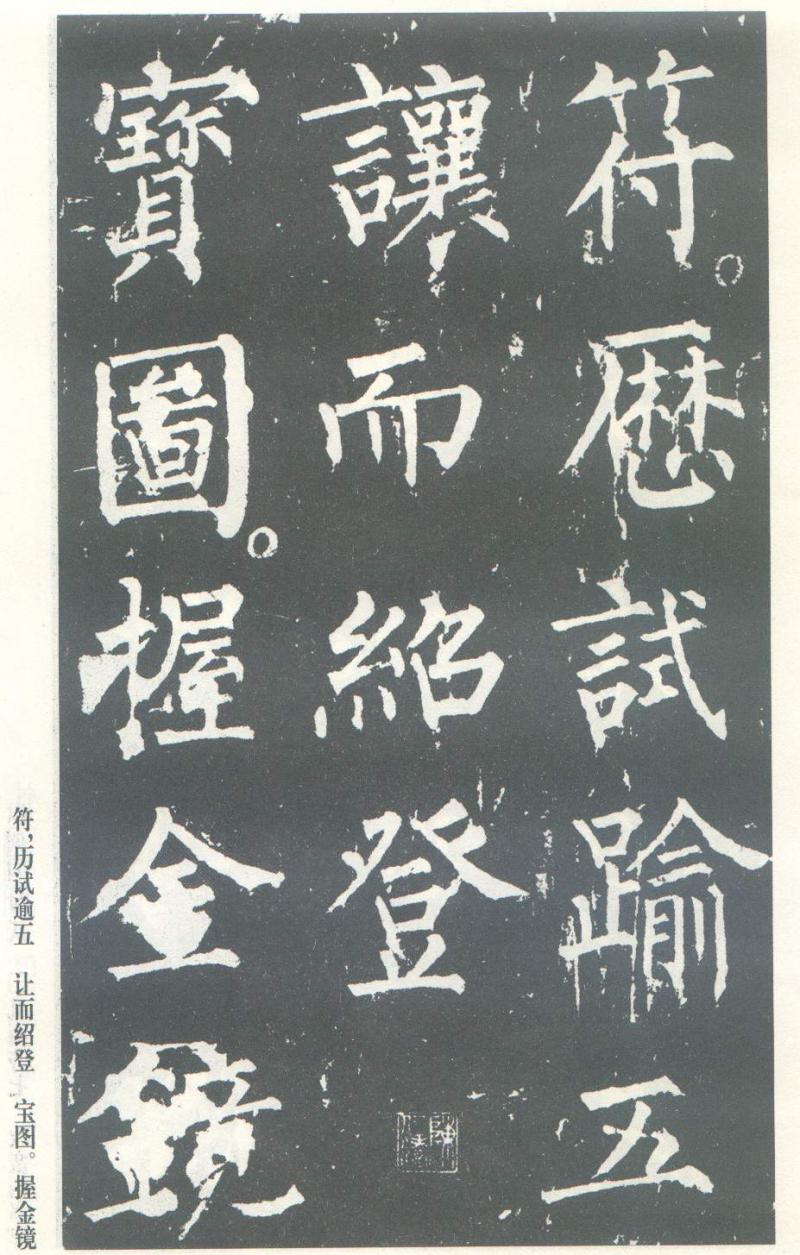 符。歴試踰五
讓而紹登
寶圖。握金鏡
符，历试逾五　让而绍登　宝图。握金镜